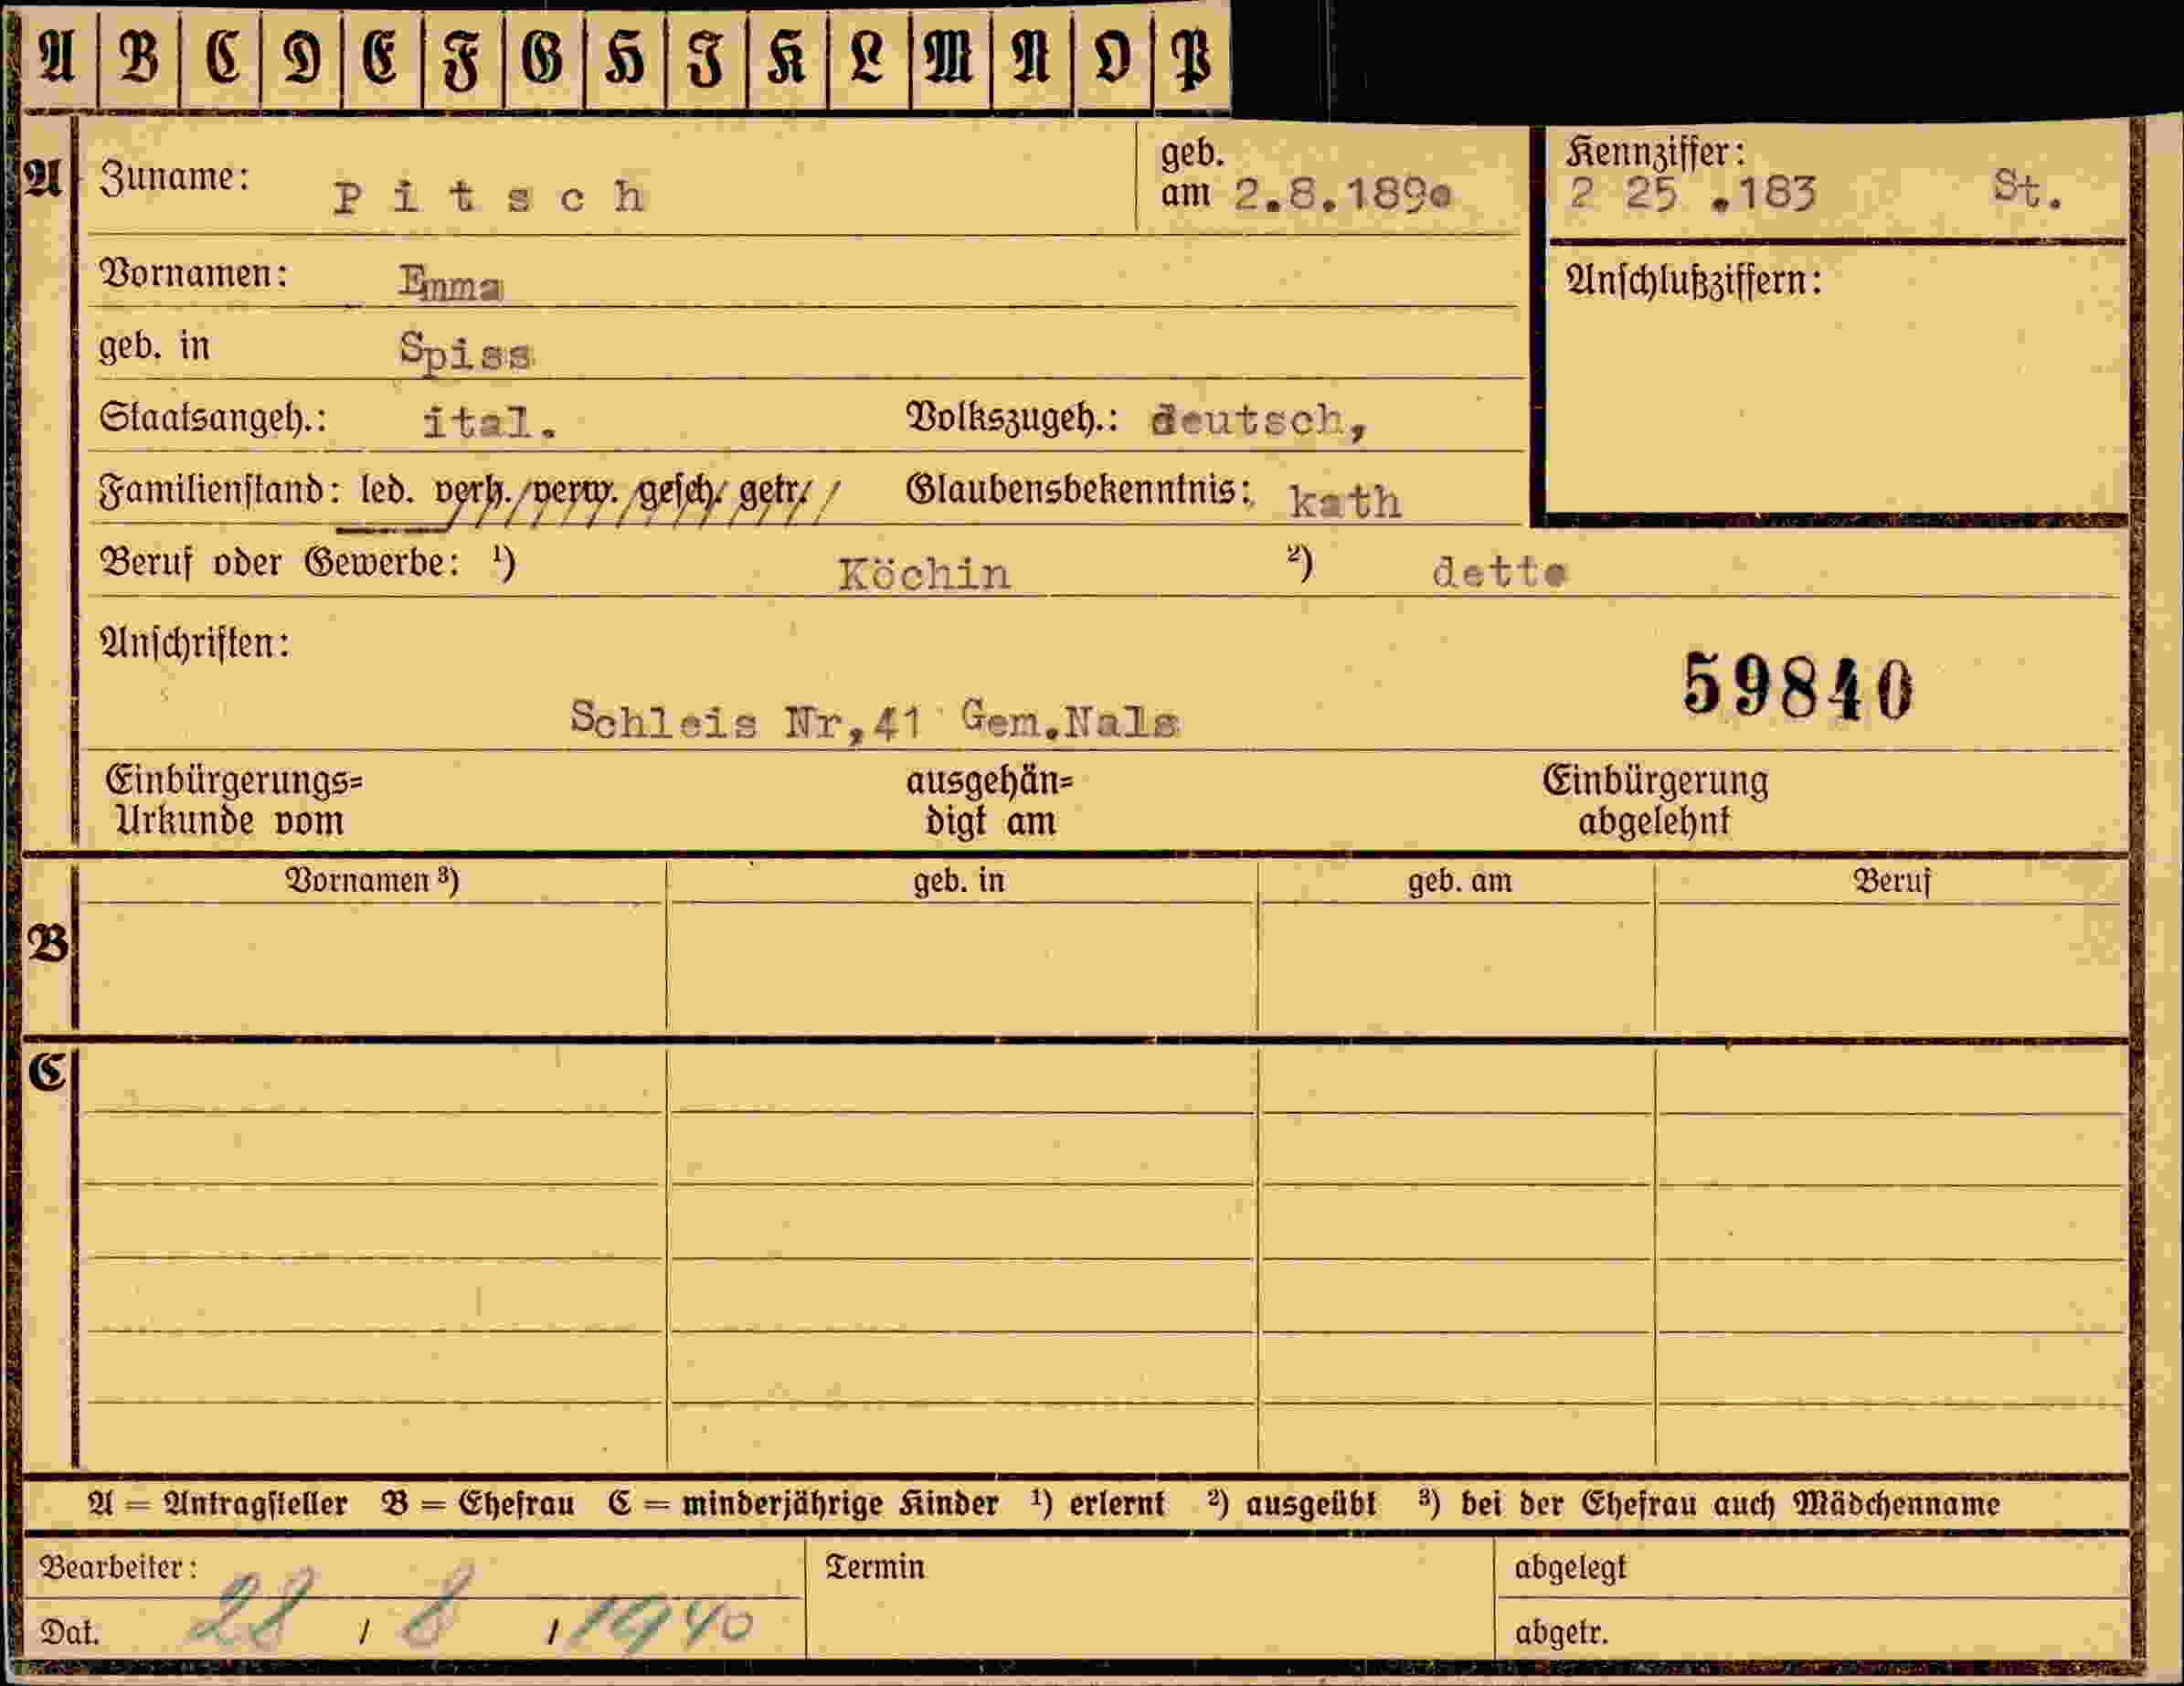 A B C D E F G H I K L M N O P
A Zuname: Pitsch geb. am 2.8.1890 Kennziffer: 2 25 .183 St.
Vornamen: Emma Anschlußziffern:
geb. in Spiss
Staatsangeh.: ital. Volkszugeh.: deutsch,
Familienstand: led. verh. verw. gesch. getr. Glaubensbekenntnis: kath
Beruf oder Gewerbe: ¹) Köchin ²) detto
Anschriften:
59840
Schleis Nr,41 Gem.Nals
Einbürgerungs= ausgehän= Einbürgerung
Urkunde vom digt am abgelehnt
Vornamen ³) geb. in geb. am Beruf
B
C
A = Antragsteller B = Ehefrau C = minderjährige Kinder ¹) erlernt ²) ausgeübt ³) bei der Ehefrau auch Mädchenname
Bearbeiter: Termin abgelegt
Dat. 28 / 8 / 1940 abgetr.